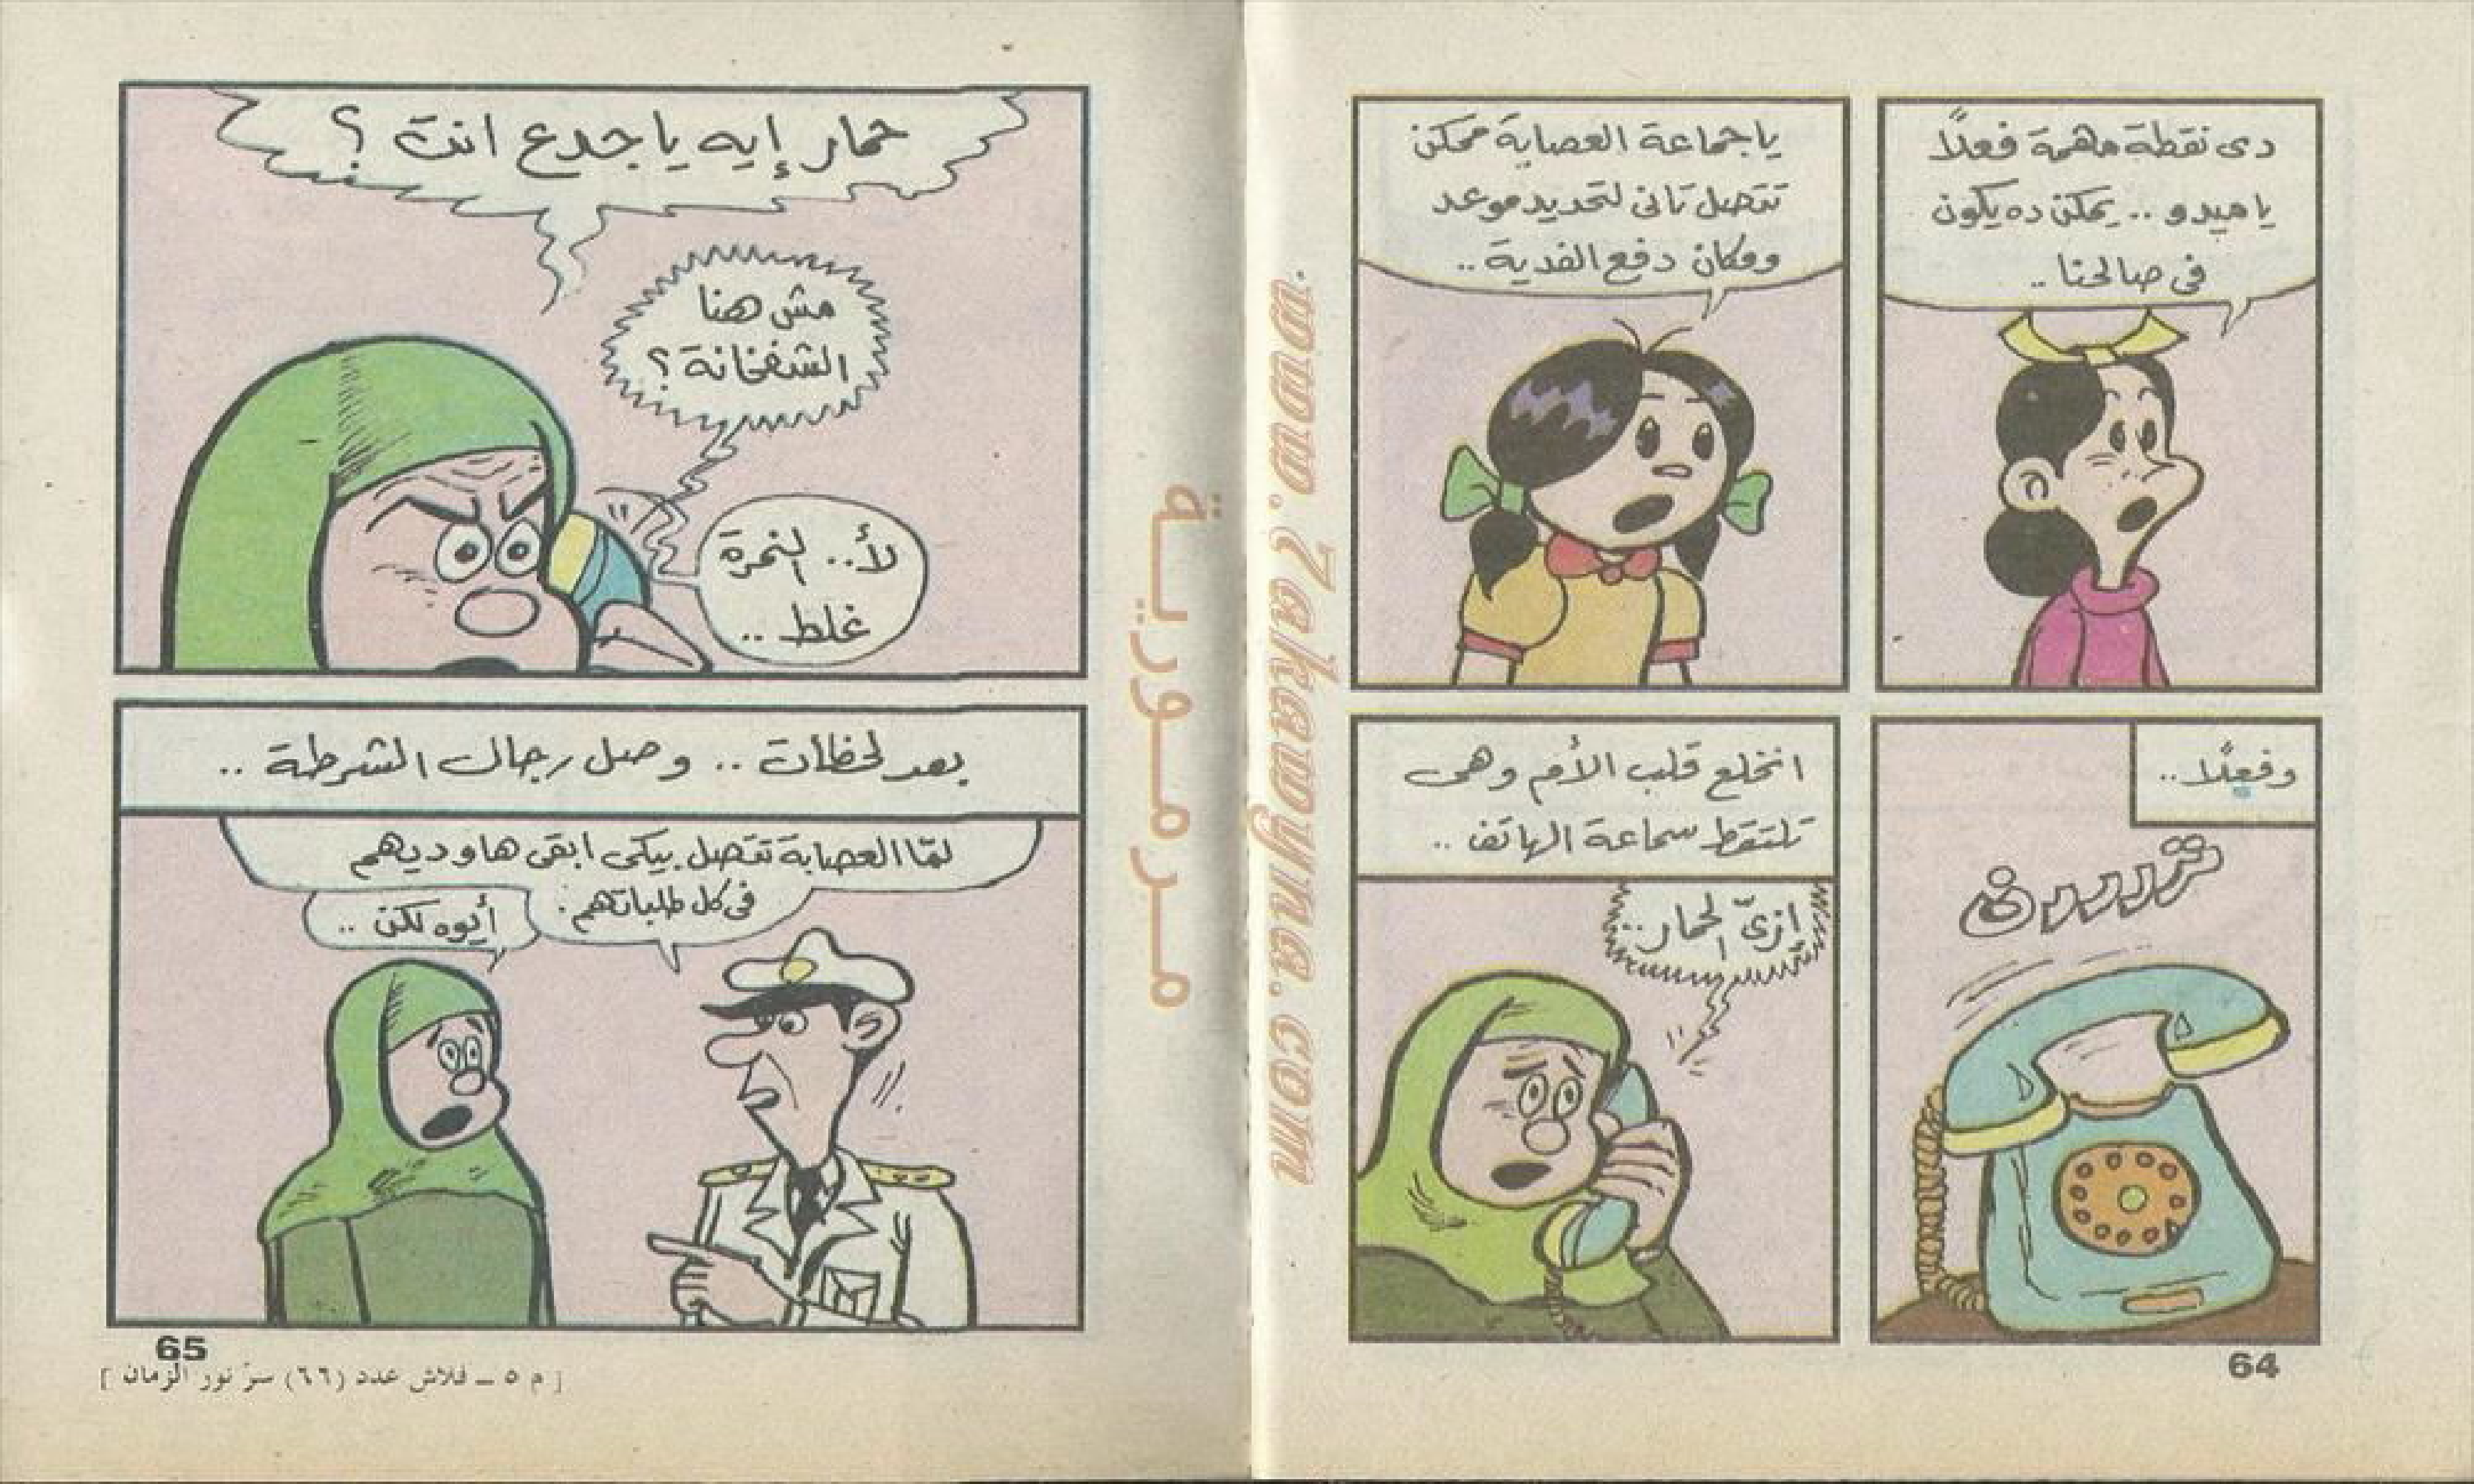 دى نقطة مهمة فعلًا
يا ميدو .. يمكن ده يكون
فى صالحنا ..
يا جماعة العصابة ممكن
تتصل تانى لتحديد موعد
ومكان دفع الفدية ..
وفعلًا ..
تررررن
انخلع قلب الأم وهى
تلتقط سماعة الهاتف ..
ازىّ الحمار ..
64
www.7akawyna.com
مرمورية
حمار إيه يا جدع انت ؟
مش هنا
الشفخانة ؟
لأ .. النمرة
غلط ..
بعد لحظات .. وصل رجال الشرطة ..
لمّا العصابة تتصل بيكى ابقى هاوديهم
فى كل طلباتهم .
أيوه لكن ..
65
[ م ٥ ــ فلاش عدد (٦٦) سرّ نور الزمان ]